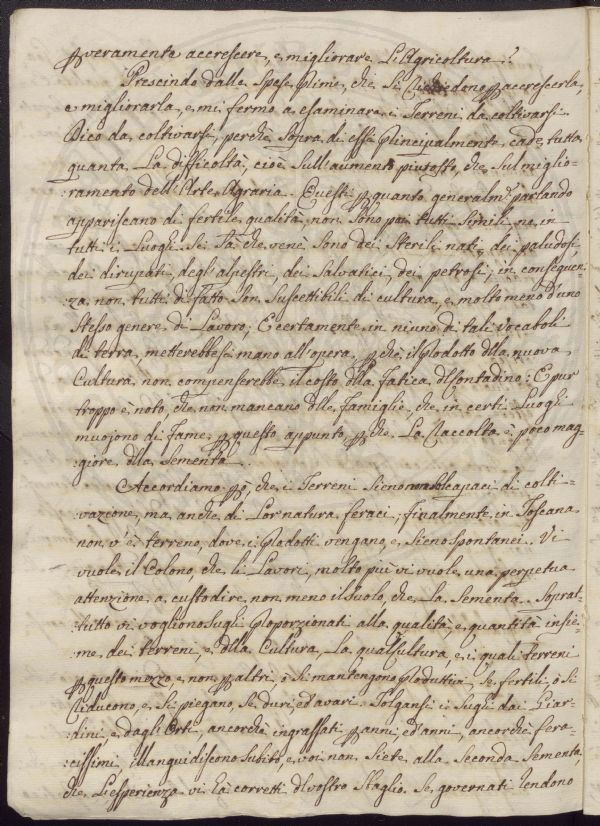 p veramente accrescere, e migliorare L'Agricoltura?
Prescindo dalle Spese Prime, che Si Richiedono p accrescerla,
e migliorarla, e mi fermo a esaminare i Terreni da coltivarsi.
Dico da coltivarsi, perchè Sopra di essi Principalmente cade tutta
quanta La difficoltà, cioè Sull'aumento piuttosto, che Sul miglio-
:ramento dell'Arte Agraria. Questi p quanto generalm.e parlando
appariscano di fertile qualità non Sono poi tutti Simili ne in
tutti i Luoghi. Si Sà che vene Sono dei Sterili nati, dei paludosi,
dei dirupati, degl'alpestri, dei Salvatici, dei petrosi; in conseguen-
za non tutti di fatto Son Suscettibili di cultura, e molto meno d'uno
Stesso genere di Lavoro; E certamente in niuno di tali vocaboli
di terra, metterebbesi mano all'opera, p che il Prodotto dlla nuova
Cultura non compenserebbe il costo dlla fatica dl Contadino: E pur
troppo è noto, che non mancano dlle famiglie, che in certi Luoghi
muojono di fame p questo appunto, p che La Raccolta è poco mag-
:giore dlla Sementa.
Accordiamo pò, che i Terreni Sieno non Sol capaci di colti-
vazione, ma anche di Lor natura feraci; finalmente in Toscana
non v'è terreno, dove i Prodotti vengano, e Sieno Spontanei. Vi
vuole il Colono, che li Lavori, molto piu vi vuole una perpetua
attenzione a custodire non meno il Suolo, che La Sementa. Soprat-
:tutto vi vogliono Sughi Proporzionati alla qualità, e quantità insie-
:me dei terreni, e dlla Cultura, La qual Cultura, e i quali terreni
p questo mezzo e non p altri, ò Si mantengono Produttivi Se fertili, ò Si
Riducono, e Si piegano Se duri, ed avari. Tolgansi i Sughi dai Giar-
:dini, e dagli Orti, ancorchè ingrassati p anni, ed anni, ancorchè fera-
:cissimi, illanguidiscono Subito, e voi non Siete alla Seconda Sementa,
che L'esperienza vi hà corretti dl vostro Sbaglio. Se governati Rendono